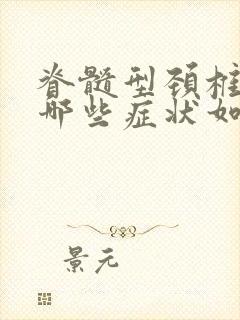 脊髓型颈椎
哪些症状如
景元